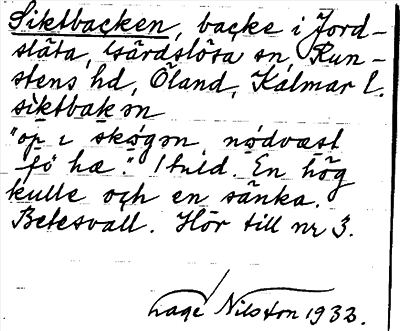 Siktbacken, backe i Jord-
släta, Gärdslösa sn, Run-
stens hd, Öland, Kalmar l.
siktbakən
"op i skøgən, nødvæst
fö hæ." 1 tnld. En hög
kulle och en sänka.
Betesvall. Hör till nr 3.
Lage Nilsson 1932.